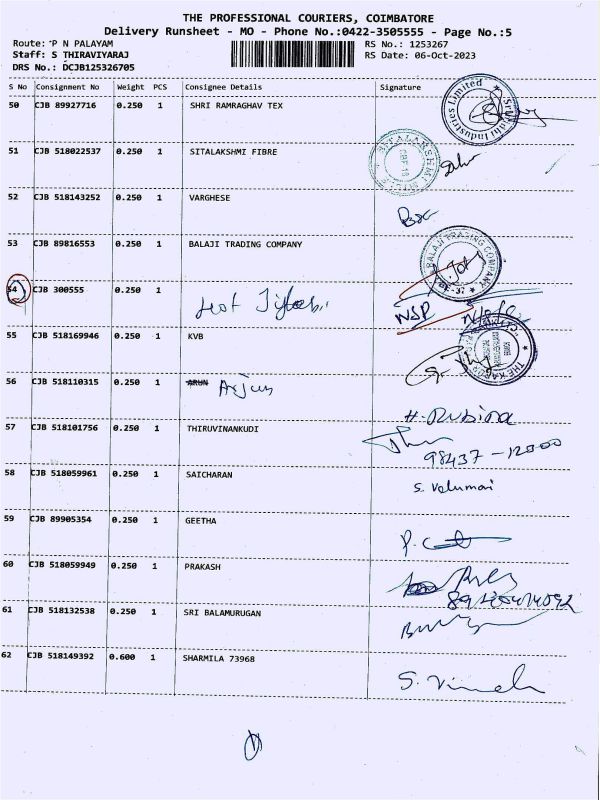 THE PROFESSIONAL COURIERS, COIMBATORE
Delivery Runsheet - MO - Phone No.:0422-3505555 - Page No.:5
Route: P N PALAYAM RS No.: 1253267
Staff: S THIRAVIYARAJ RS Date: 06-Oct-2023
DRS No.: DCJB125326705
S No Consignment No Weight PCS Consignee Details Signature
50 CJB 89927716 0.250 1 SHRI RAMRAGHAV TEX
51 CJB 518022537 0.250 1 SITALAKSHMI FIBRE
52 CJB 518143252 0.250 1 VARGHESE
53 CJB 89816553 0.250 1 BALAJI TRADING COMPANY
BALAJI TRADING COMPANY
54 CJB 300555 0.250 1
NSP
55 CJB 518169946 0.250 1 KVB
56 CJB 518110315 0.250 1 ARUN Arjun
H. Rubina
57 CJB 518101756 0.250 1 THIRUVINANKUDI
98437-12000
58 CJB 518059961 0.250 1 SAICHARAN
S. Velumani
59 CJB 89905354 0.250 1 GEETHA
60 CJB 518059949 0.250 1 PRAKASH
61 CJB 518132538 0.250 1 SRI BALAMURUGAN
62 CJB 518149392 0.600 1 SHARMILA 73968